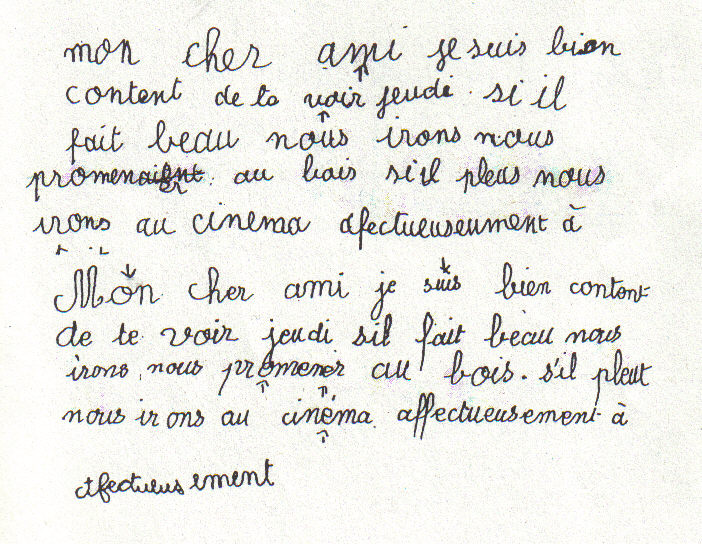 mon cher ami je suis bien
content de ta voir jeudi. si il
fait beau nous irons nous
promener au bois si'il pleus nous
irons au cinema afectueuseument à
Mon cher ami je suis bien content
de te voir jeudi sil fait beau nous
irons, nous promener au bois. s'il pleut
nous irons au cinéma. affectueusement à
afectueusement